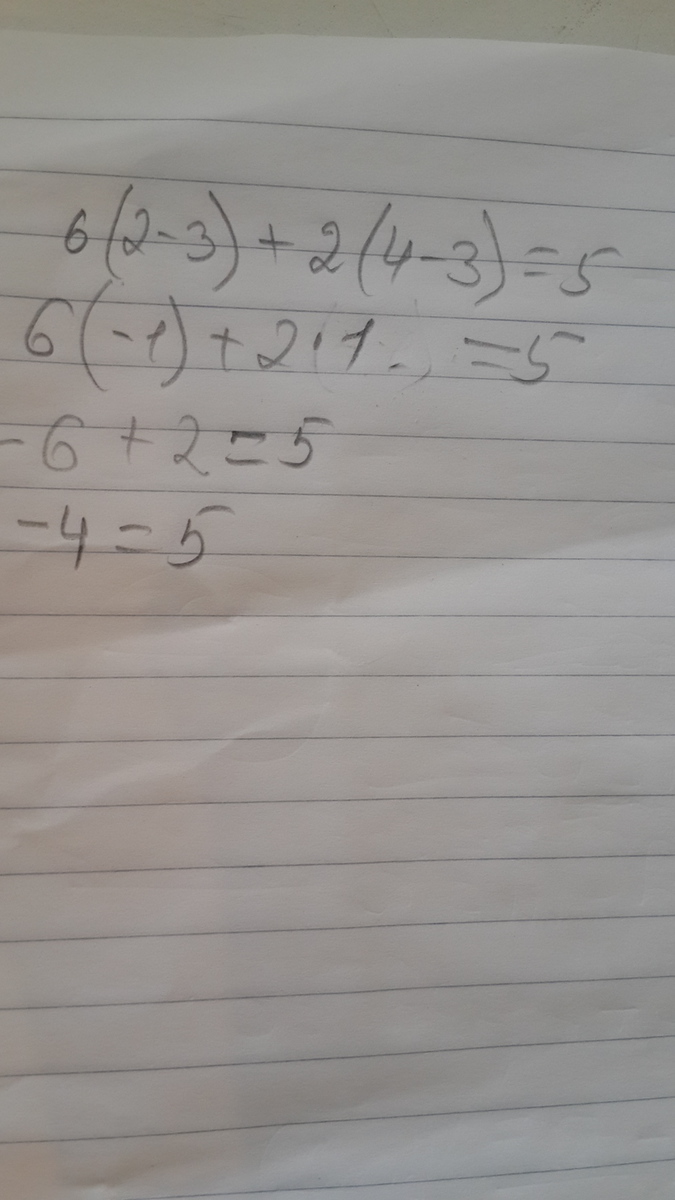 6(2-3)+2(4-3)=5
6(-1)+2·1=5
-6+2=5
-4=5